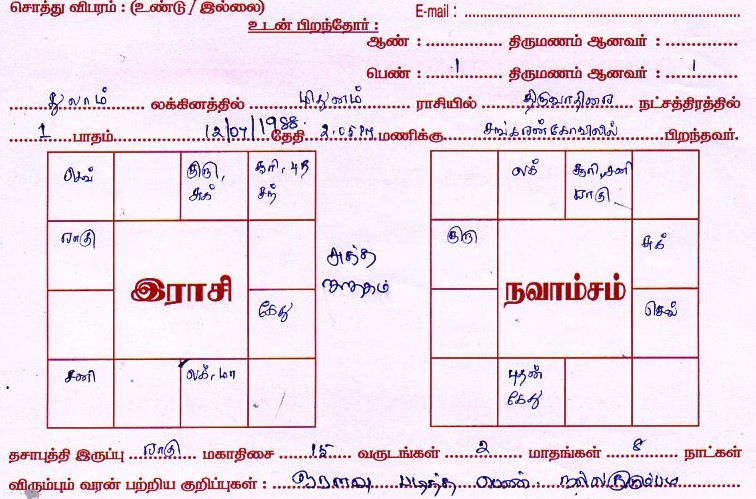 சொத்து விபரம் : (உண்டு / இல்லை)
E-mail :
உடன் பிறந்தோர் :
ஆண் : திருமணம் ஆனவர் :
பெண் : 1 திருமணம் ஆனவர் : 1
துலாம் லக்கினத்தில் மிதுனம் ராசியில் திருவாதிரை நட்சத்திரத்தில்
1 பாதம். 12/07/1988 தேதி 2.05 PM மணிக்கு சங்கரன்கோவிலில் பிறந்தவர்.
செவ்
குரு,
சுக்
சூரி, புத
சந்
ராகு
இராசி
கேது
சனி
லக், மா
லக்
சூரி, சனி
ராகு
குரு
சுக்
நவாம்சம்
செவ்
புதன்
கேது
தசாபுத்தி இருப்பு ராகு மகாதிசை 15 வருடங்கள் 2 மாதங்கள் 8 நாட்கள்
விரும்பும் வரன் பற்றிய குறிப்புகள் : ஓரளவு படித்த பெண். நல்ல குடும்பம்